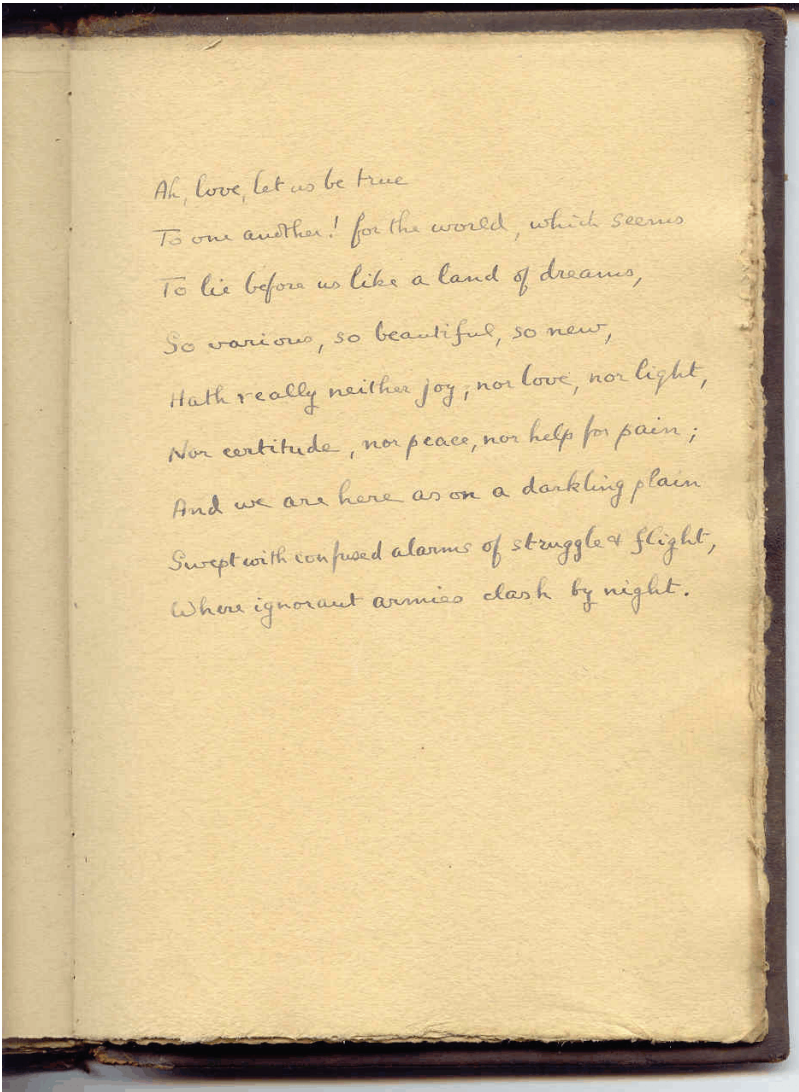 Ah, love, let us be true
To one another! for the world, which seems
To lie before us like a land of dreams,
So various, so beautiful, so new,
Hath really neither joy, nor love, nor light,
Nor certitude, nor peace, nor help for pain;
And we are here as on a darkling plain
Swept with confused alarms of struggle & flight,
Where ignorant armies clash by night.